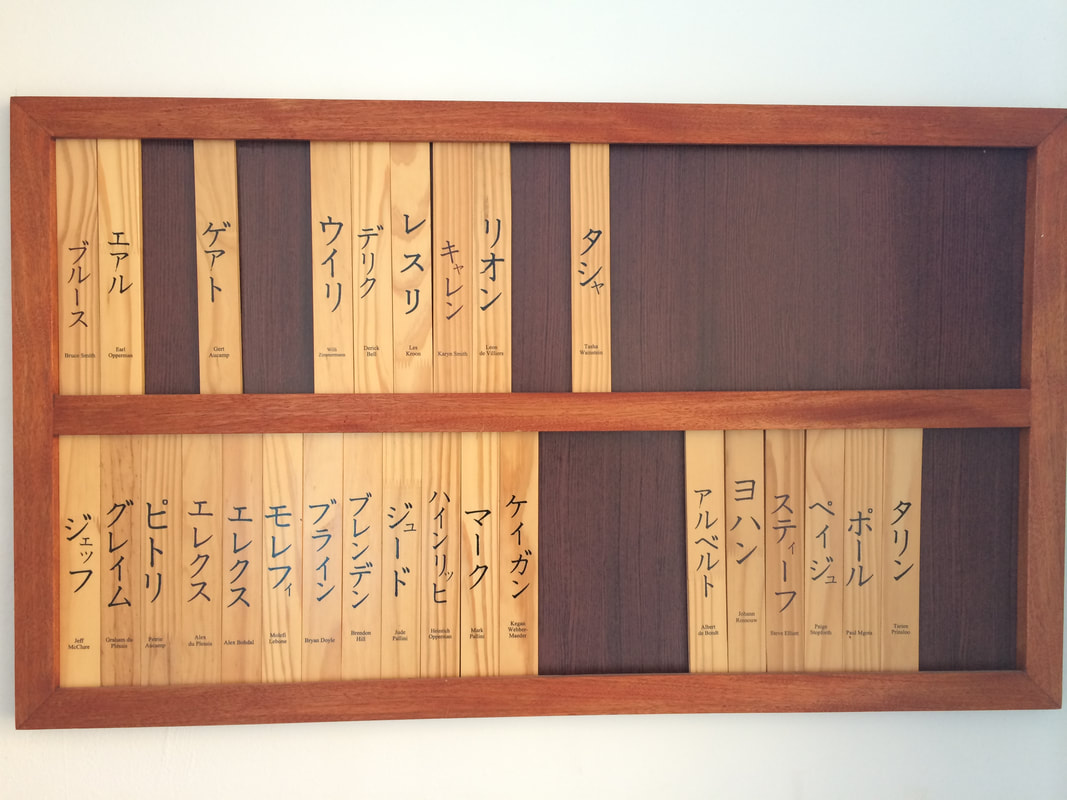 ブルース
Bruce Smith
エアル
Earl
Opperman
ゲアト
Gert
Aucamp
ウイリ
Willi
Zimmermann
デリク
Derick
Bell
レスリ
Les
Kroon
キャレン
Karyn Smith
リオン
Leon
de Villiers
タシャ
Tasha
Weinstein
ジェッフ
Jeff
McClure
グレイム
Graham du
Plessis
ピトリ
Petrie
Aucamp
エレクス
Alex
du Plessis
エレクス
Alex Bohdal
モレフィ
Molefi
Lebone
ブライン
Bryan Doyle
ブレンデン
Brendon
Hill
ジュード
Jude
Pallisi
ハインリッヒ
Heinrich
Opperman
マーク
Mark
Pallisi
ケイガン
Kegan
Webber-
Maeder
アルベルト
Albert
de Bondt
ヨハン
Johann
スティーフ
Steve Elliott
ペイジュ
Paige
Stopforth
ポール
Paul Mgota
タリン